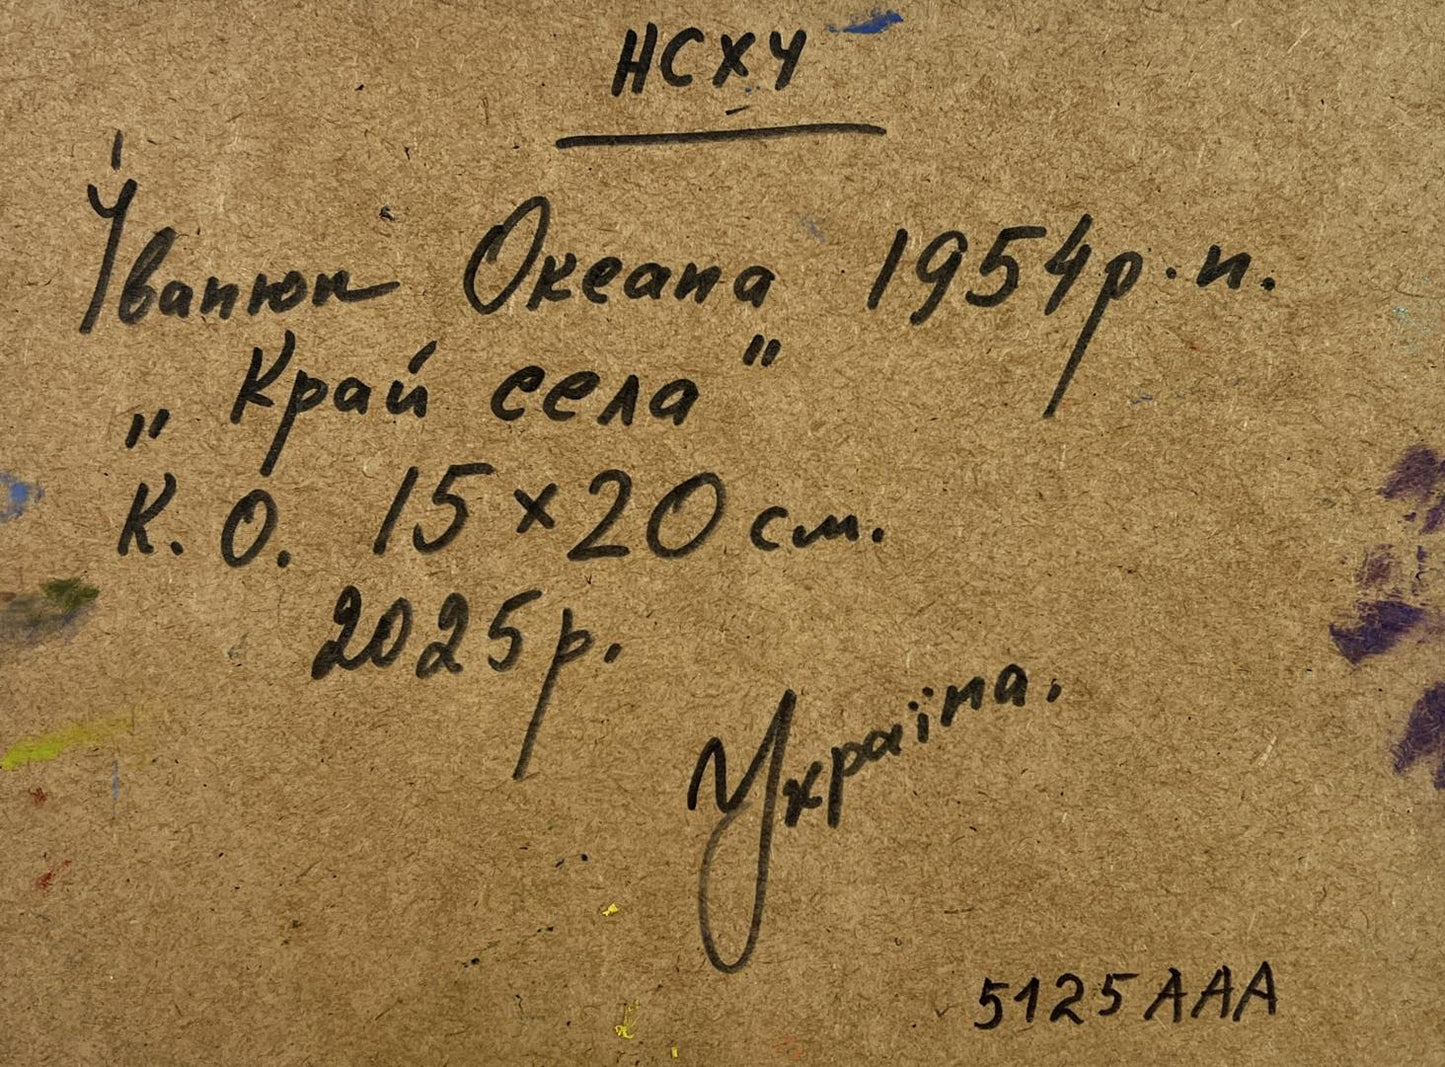 НСХУ
Іванюк Оксана 1954 р.н.
„Край села"
К. О. 15×20 см.
2025р.
Україна.
5125 ААА